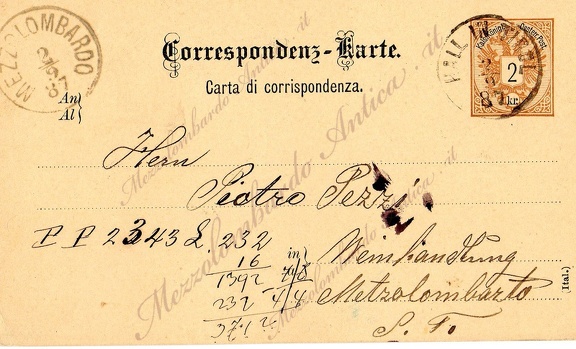 MEZZOLOMBARDO
Correspondenz-Karte.
Carta di corrispondenza.
HALL IN TIROL
2 kr.
An
Al
Herrn
Pietro Pezzi
P P 2343 L 232
16
1392
232
3712
in
Weinhandlung
Metzolombarto
S. T.
(Ital.)
Mezzolombardo Antica .it